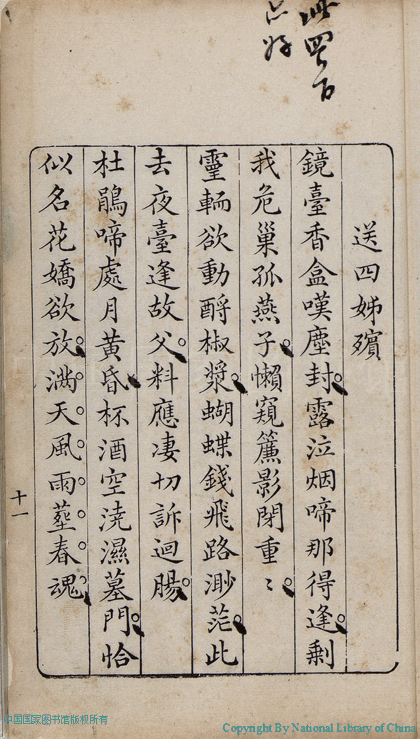 送四姊殯
鏡臺香盒嘆塵封露泣烟啼那得逢剩
我危巢孤燕子懶窺簾影閉重〻
靈輀欲動酹椒漿蝴蝶錢飛路渺茫此
去夜臺逢故父料應凄切訴迴腸
杜鵑啼處月黄昏杯酒空澆濕墓門恰
似名花嬌欲放滿天風雨塟春魂
十一
中国国家图书馆版权所有
Copyright By National Library of China